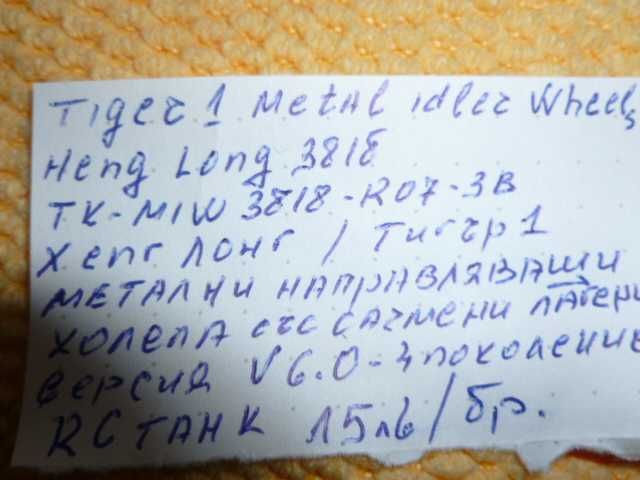 Tiger 1 Metal idler wheels
Heng Long 3818
TK-M1W 3818-R07-3B
Хенг Лонг / Тигър 1
МЕТАЛНИ НАПРАВЛЯВАЩИ
ХОЛЕЛА със САЧМЕНИ ЛАГЕРИ
версия V 6.0 - 4 поколение
RC ТАНК 15лв/бр.